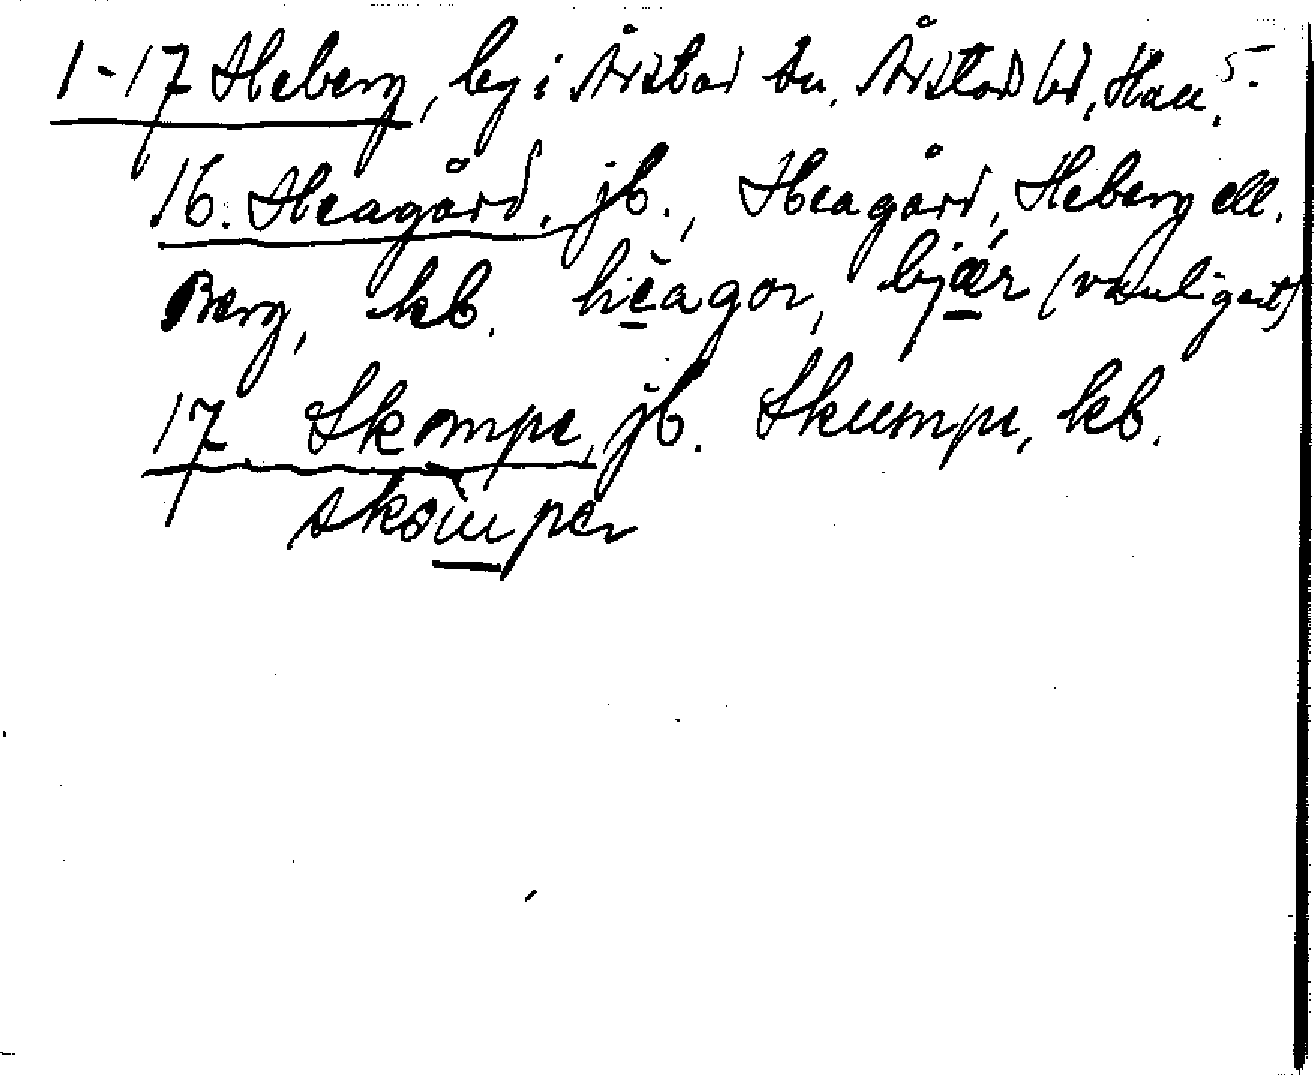 1-17 Heberg, by i Årstad sn, Årstad hd, Hall. 5.
16. Heagård. jb., Heagård, Heberg ell.
Berg, kb. hèagor, bjær (vanligast)
17 Skompe, jb. Skumpe, kb.
skomper